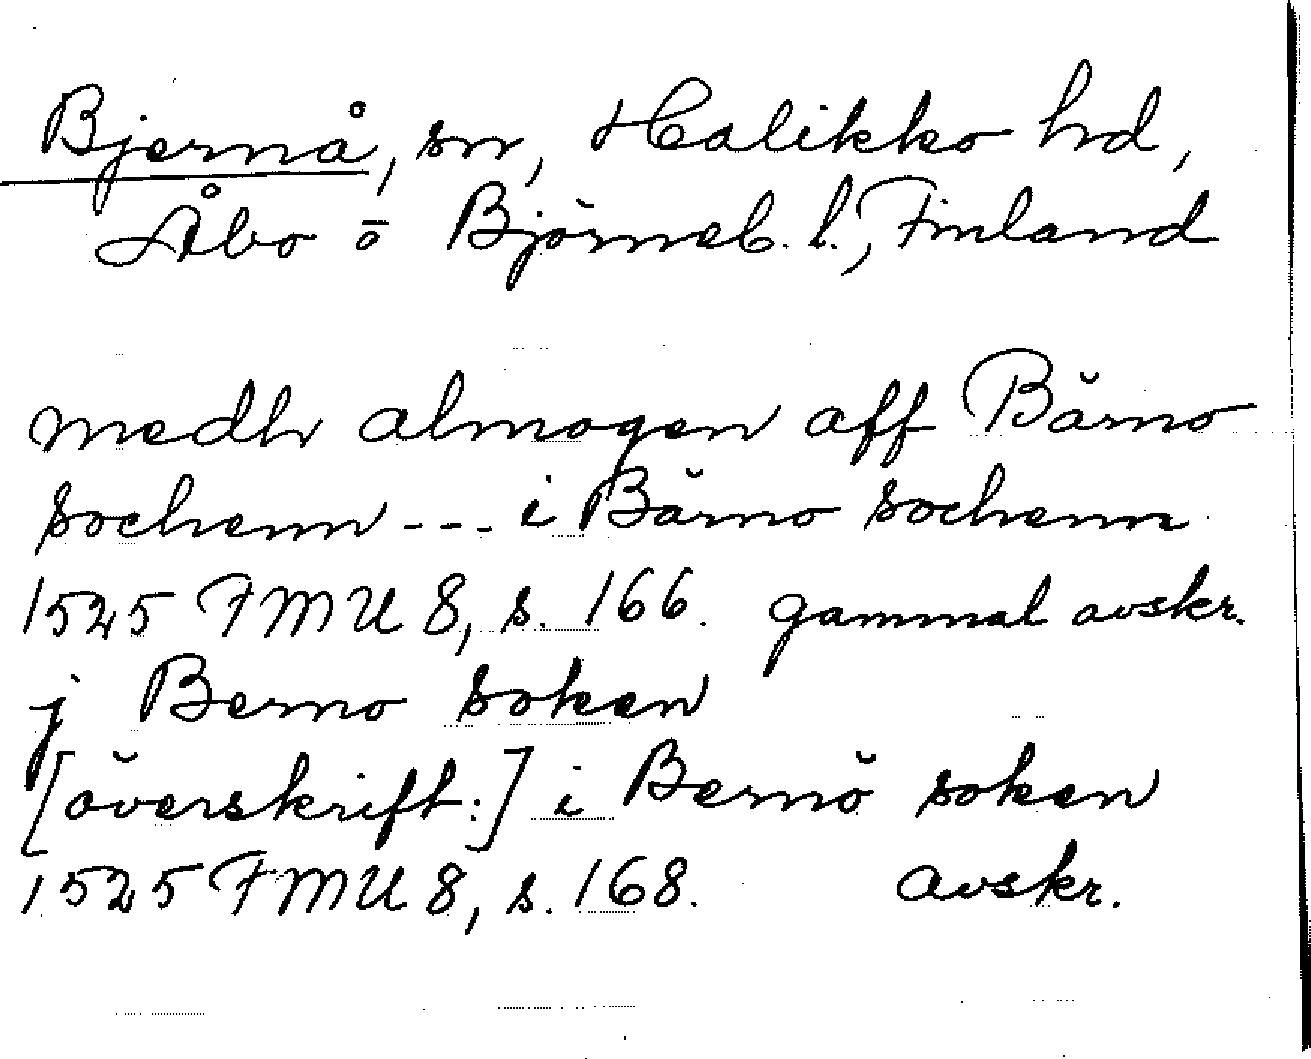 Bjernå, sn, Halikko hd,
Åbo o Björneb. l., Finland
medh almogen aff Bärno
sochenn --- i Bärno sochenn
1525 FMU 8, s. 166. gammal avskr.
j Berno soken
[överskrift:] i Bernö soken
1525 FMU 8, s. 168. avskr.